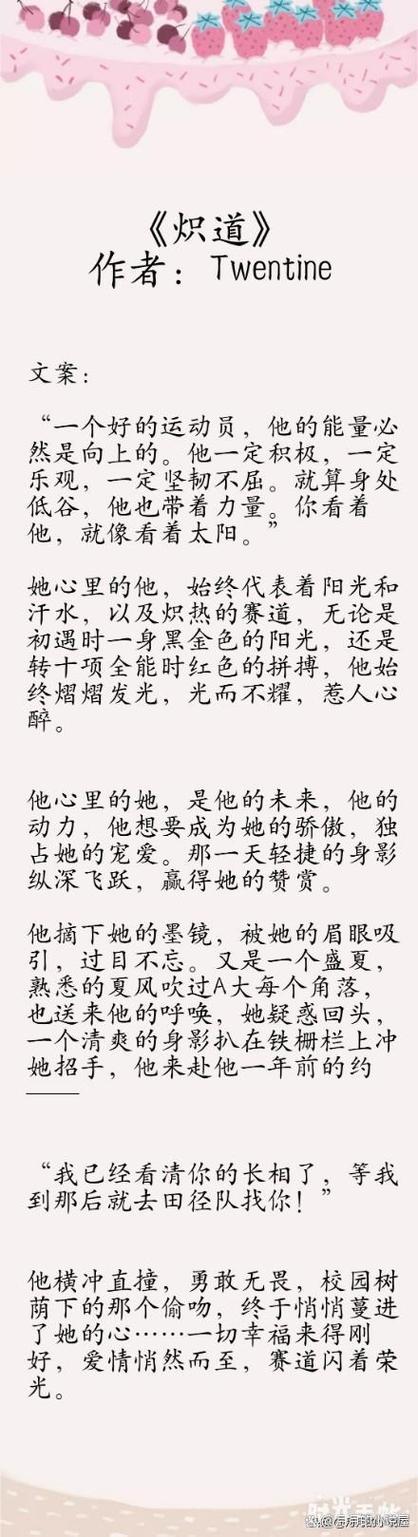 《炽道》
作者：Twentine
文案：
“一个好的运动员，他的能量必
然是向上的。他一定积极，一定
乐观，一定坚韧不屈。就算身处
低谷，他也带着力量。你看着
他，就像看着太阳。”
她心里的他，始终代表着阳光和
汗水，以及炽热的赛道，无论是
初遇时一身黑金色的阳光，还是
转十项全能时红色的拼搏，他始
终熠熠发光，光而不耀，惹人心
醉。
他心里的她，是他的未来，他的
动力，他想要成为她的骄傲，独
占她的宠爱。那一天轻捷的身影
纵深飞跃，赢得她的赞赏。
他摘下她的墨镜，被她的眉眼吸
引，过目不忘。又是一个盛夏，
熟悉的夏风吹过A大每个角落，
也送来他的呼唤，她疑惑回头，
一个清爽的身影扒在铁栅栏上冲
她招手，他来赴他一年前的约
——
“我已经看清你的长相了，等我
到那后就去田径队找你！”
他横冲直撞，勇敢无畏，校园树
荫下的那个偷吻，终于悄悄蔓进
了她的心……一切幸福来得刚
好，爱情悄然而至，赛道闪着荣
光。